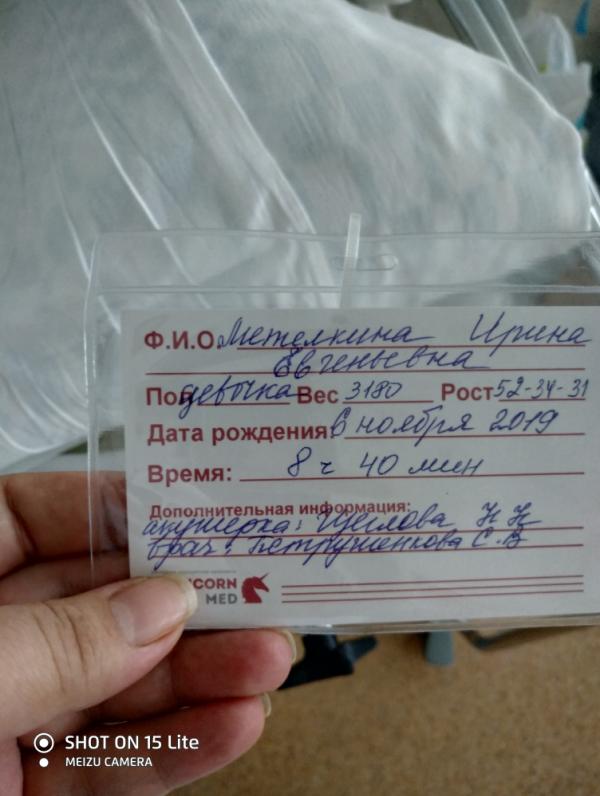 Ф.И.О. Метелкина Ирина
Евгеньевна
Пол девочка Вес 3180 Рост 52-34-31
Дата рождения: 6 ноября 2019
Время: 8 ч 40 мин
Дополнительная информация:
акушерка: Щеглова Н Н
врач: Петрушенкова С. В
ICORN
MED
SHOT ON 15 Lite
MEIZU CAMERA